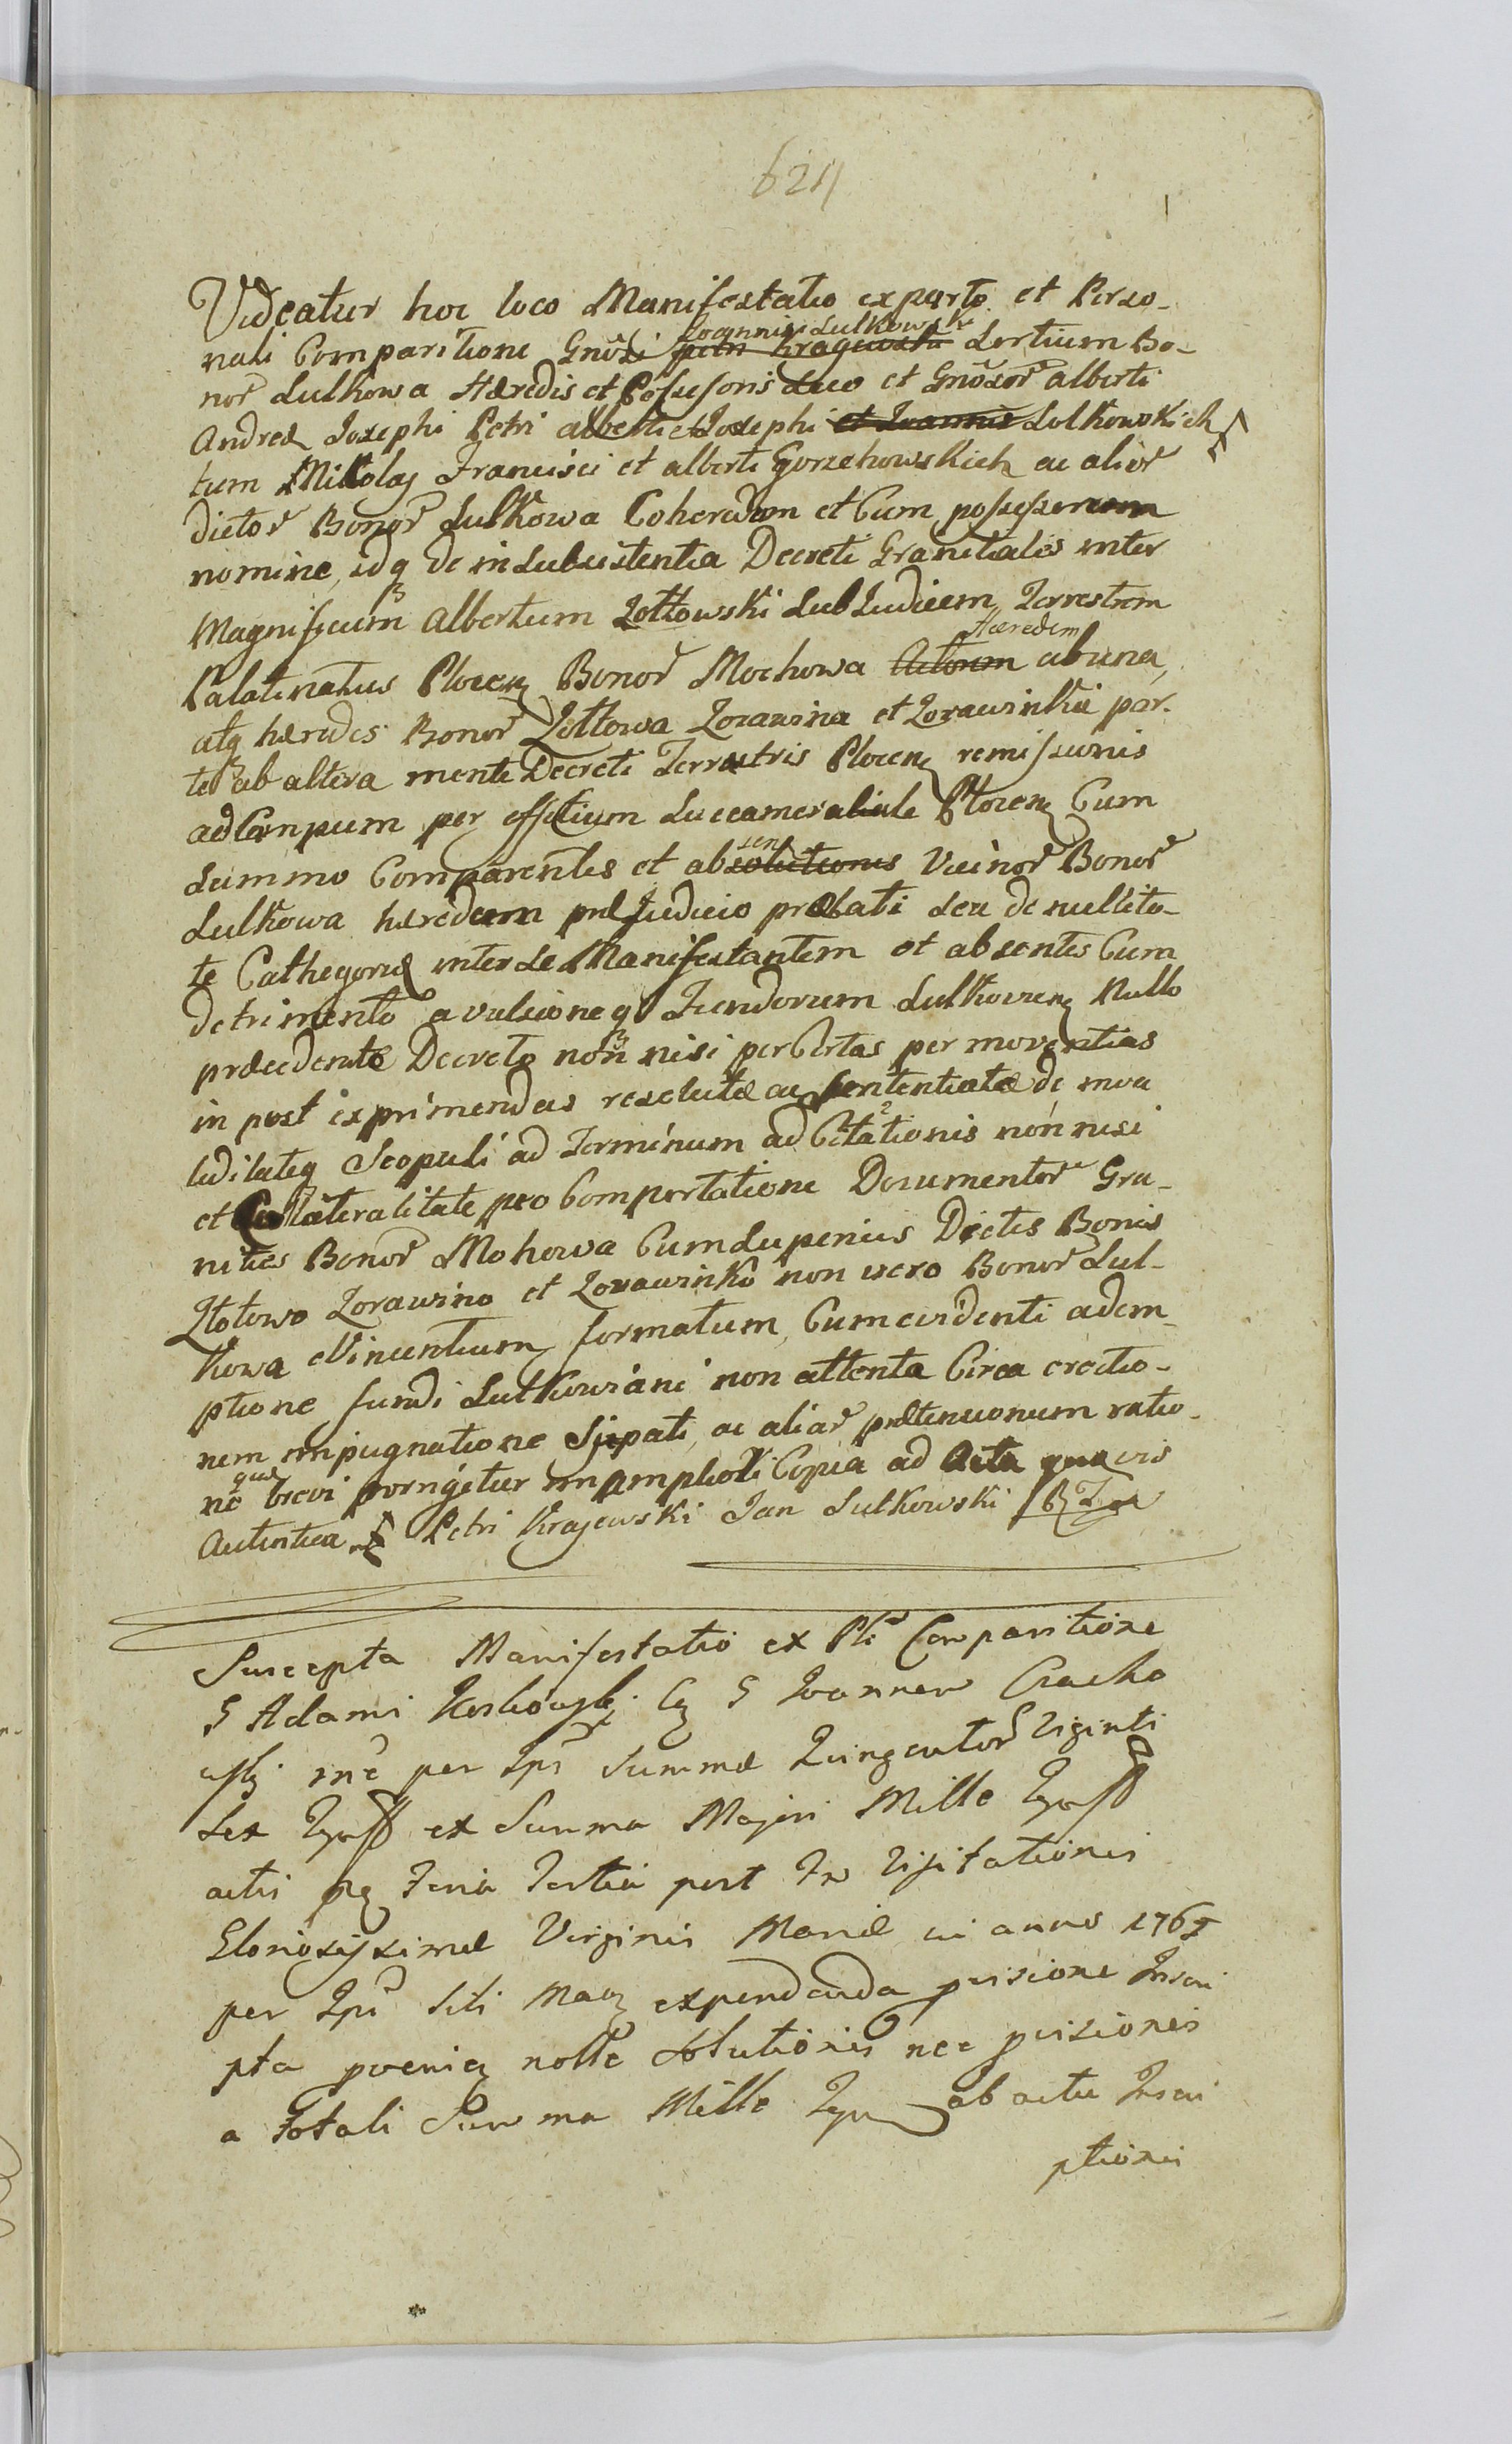 621
Videatur hoc loco Manifestatio ex parte et Perso-
nali Comparitione Gnosi Joannis Sulkowski petri Krajewski Sortium Bo-
nor Sulkowa Hæredis et Possessoris suo et Gnosor Alberti
Andreæ Josephi Petri Alberti et Josephi et Joannis Sulkowskich
tum Mikolaj Francisci et Alberti Gorzehowskich ac alior
dictor Bonor Sulkowa Coheredum et Cum possessorum
nomine, idq de in Subsistentia Decreti Granitialis inter
Magnificum Albertum Zołtowski Sub Judicem Terrestrem
Palatinatus Plocen Bonor Mochowa Actorum Hæredem ab una,
atq hæredes Bonor Zołtowa Zorawina et Zorawinka par-
te ab altera mente Decreti Terrestris Plocen remissionis
ad Campum per officium Succamerale Plocen Cum
Summo Comparentis et absen Vicinor Bonor
Sulkowa hæredum præJudicio prolati seu de nullita-
te Cathegoriæ inter se Manifestantem et absentes Cum
detrimento avulsioneq Fundorum Sulkowien Nullo
præcedente Decreto non nisi per Certas per moventias
in post exprimendas resolutæ ac sententiatæ de inva
liditateq Scopuli ad Terminum ad Citationis non nisi
et Collateralitate pro Comportatione Documentor Gra-
nities Bonor Mohowa Cum Superius Dictis Bonis
Złotowo Zorawino et Zorawinko non vero Bonor Sul-
kowa evincentium formatum, Cum evidenti adem-
ptione fundi Sulkowiani non attenta Circa erectio-
nem impugnatione Sypati, ac aliar prætensionum ratio-
ne quæ brevi porrigetur in ampliori Copia ad Acta quævis
Autentica Petri Krajewski Jan Sulkowski
Suscepta Manifestatio ex Pli Comparitione
G Adami Koskowski Cu G Joannem Cracho
wski me per Ips Summæ Quingentor Viginti
Sex ex Summa Majori Mille
actis pn Feria Tertia post Fm Visitationis
Gloriosissimæ Virginis Mariæ in anno 1767
per Ips Siti Mag expendenda provisione Inscri
pta poenia nolle Solutionis nec provisionis
a totali Summa Mille ab actu Inscri
ptionis